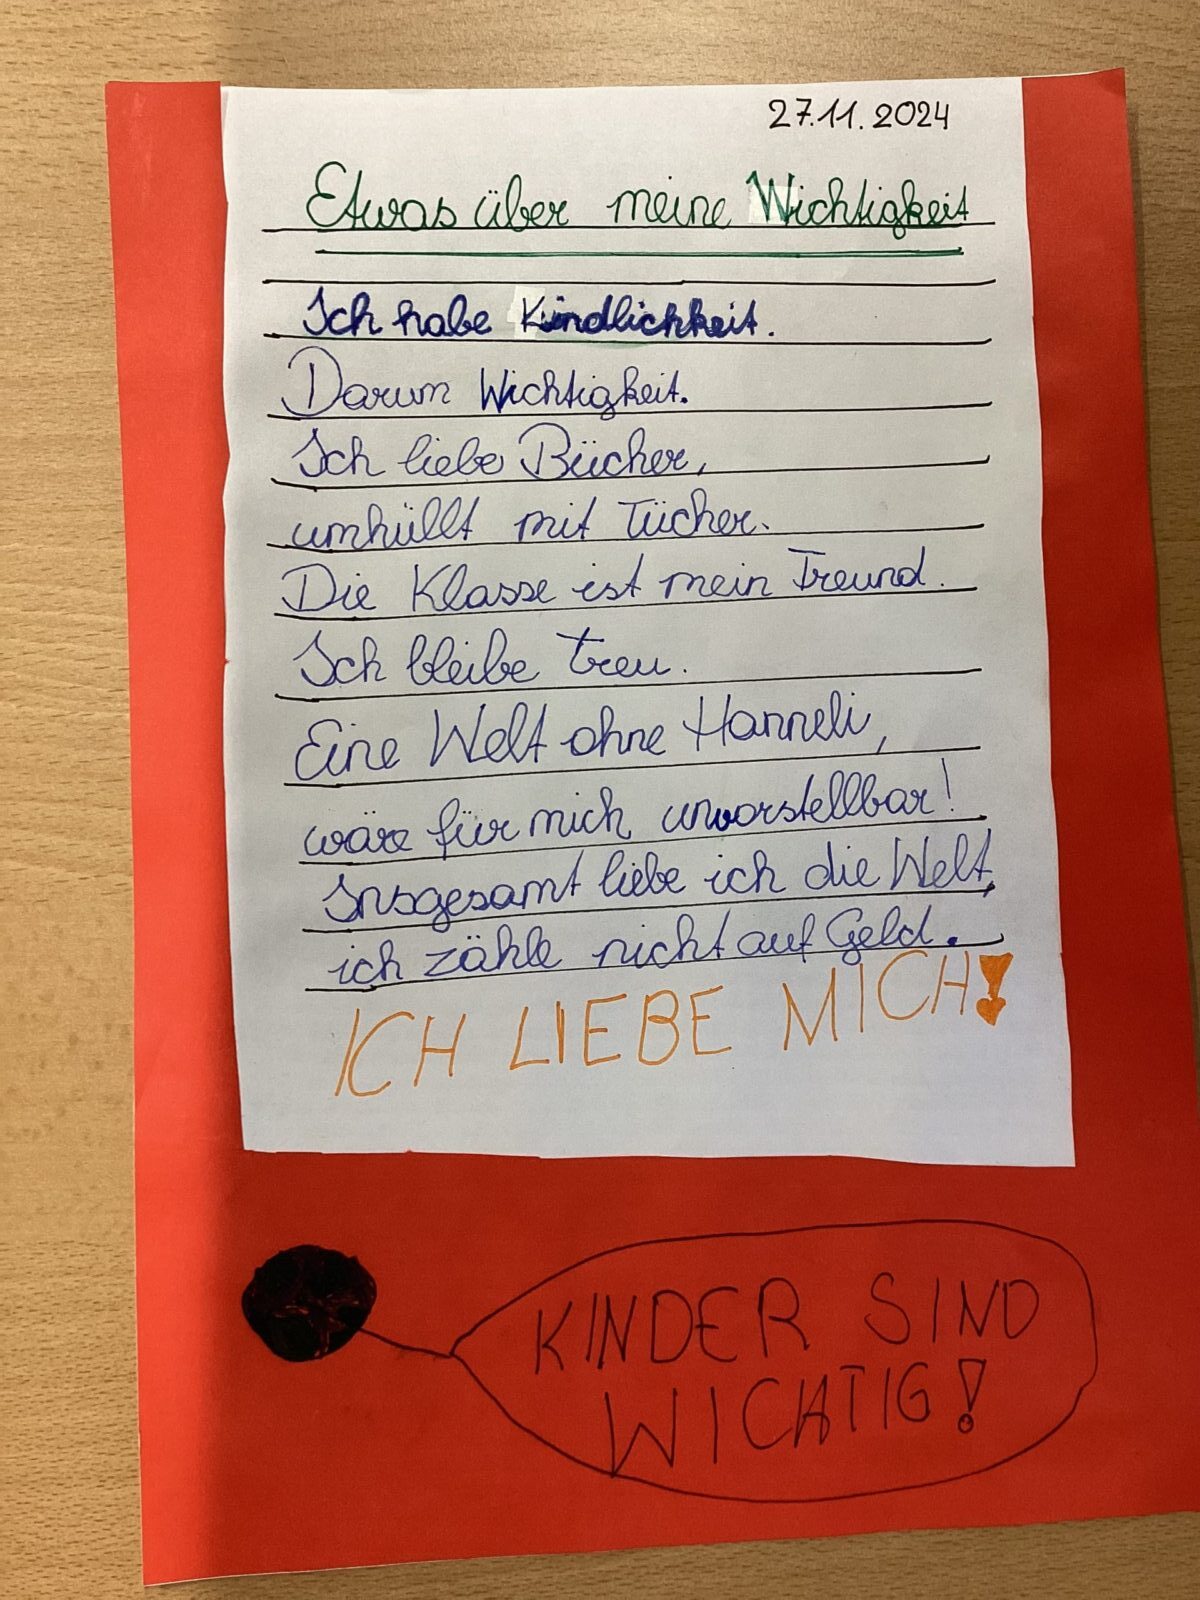 27.11.2024
Etwas über meine Wichtigkeit
Ich habe Kindlichkeit.
Darum Wichtigkeit.
Ich liebe Bücher,
umhüllt mit Tücher.
Die Klasse ist mein Freund.
Ich bleibe treu.
Eine Welt ohne Hanneli,
wäre für mich unvorstellbar!
Insgesamt liebe ich die Welt,
ich zähle nicht auf Geld.
ICH LIEBE MICH!
KINDER SIND
WICHTIG!